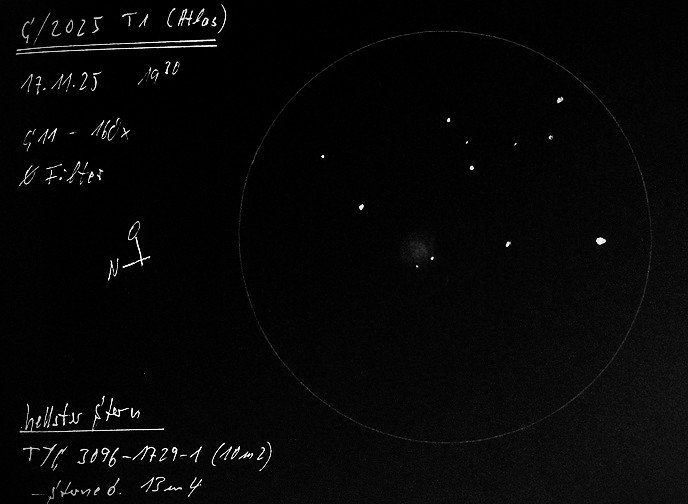 C/2025 T1 (Atlas)
17.11.25 19³⁰
C11 - 160x
Ø Filter
O
N
hellster Stern
TYC 3096-1729-1 (10m2)
- Sterne b. 13m4